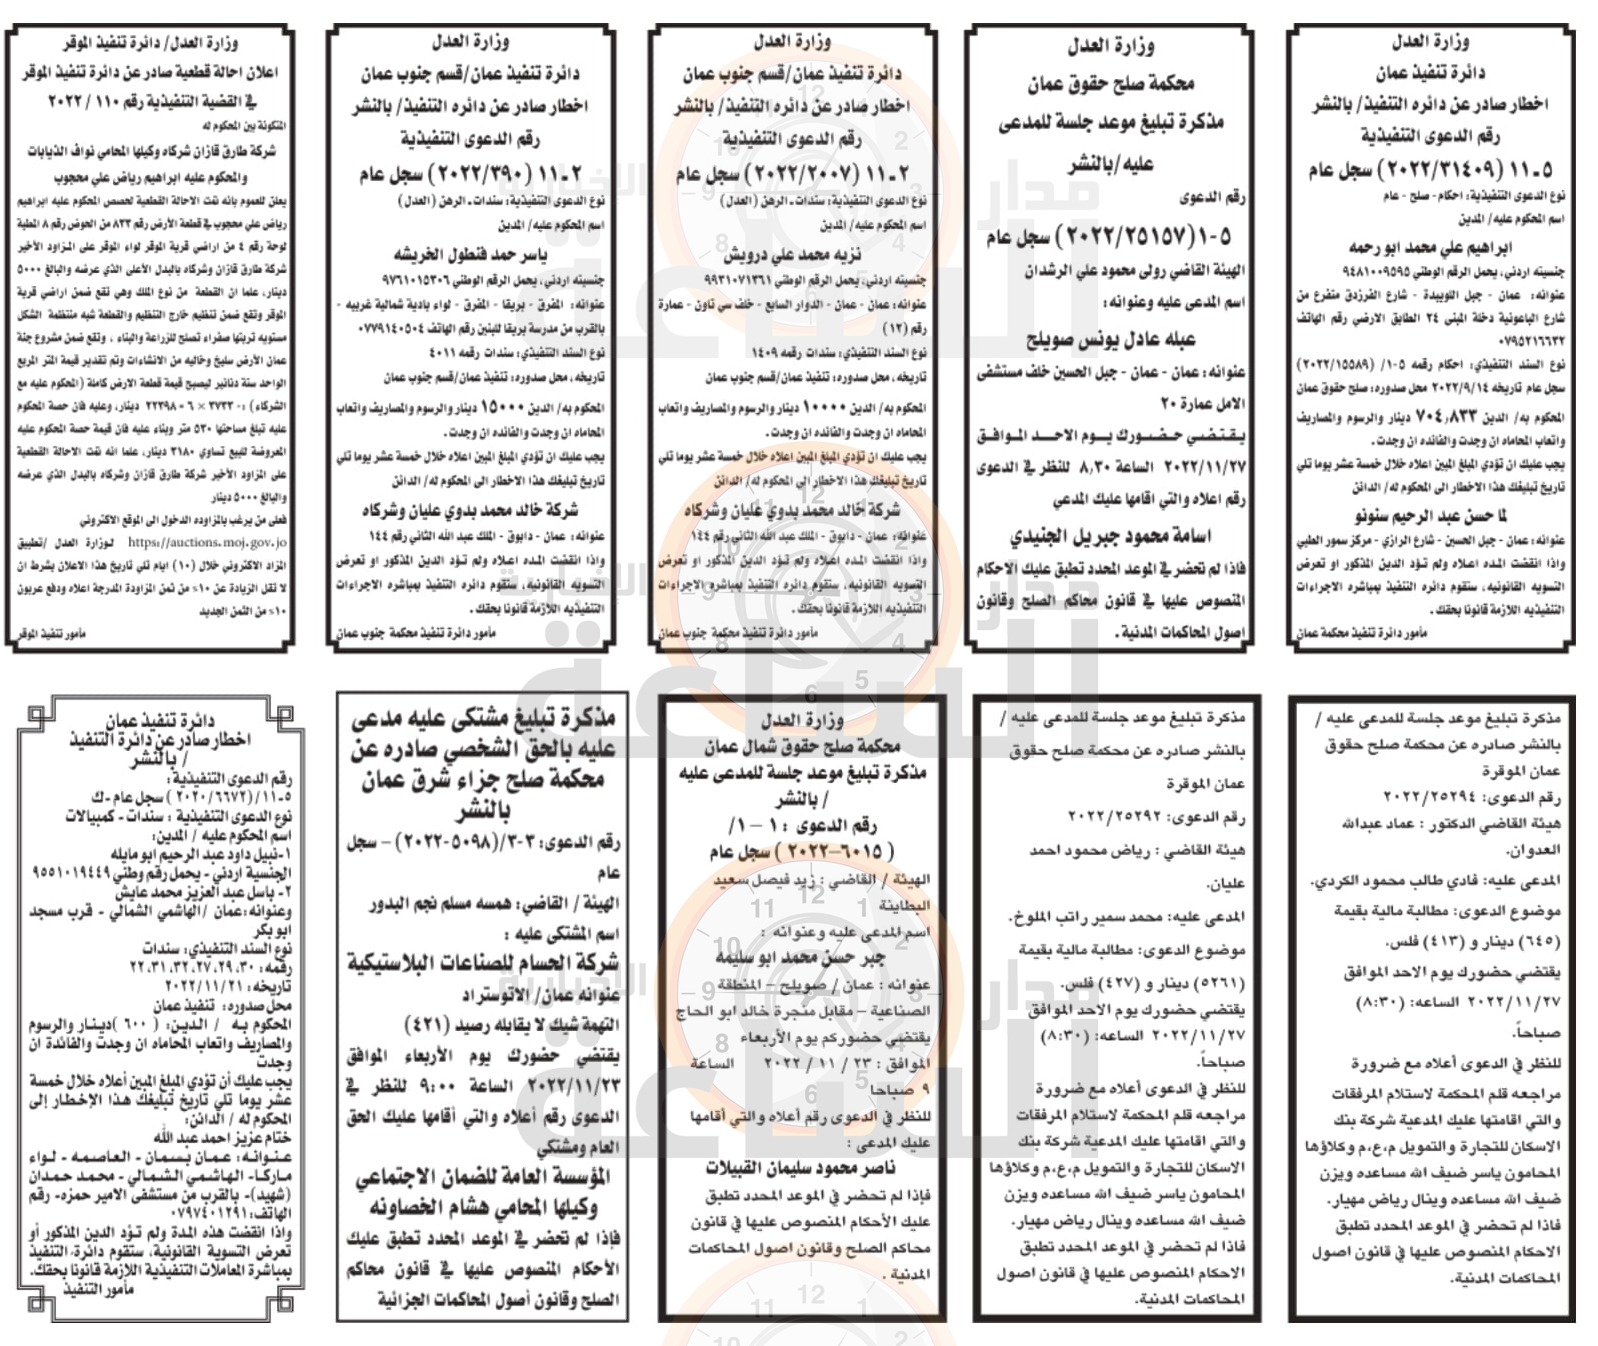 وزارة العدل
دائرة تنفيذ عمان
اخطار صادر عن دائره التنفيذ/ بالنشر
رقم الدعوى التنفيذية
٥-١١ (٢٠٢٢/٣١٤٠٩) سجل عام
نوع الدعوى التنفيذية: احكام - صلح - عام
اسم المحكوم عليه/ المدين
ابراهيم علي محمد ابو رحمه
جنسيته اردني، يحمل الرقم الوطني ٩٤٨١٠٠٩٥٩٥
عنوانه: عمان - جبل اللويبدة - شارع الفرزدق متفرع من
شارع الباعونية دخلة المبنى ٢٤ الطابق الارضي رقم الهاتف
٠٧٩٥٢١٦٦٣٢
نوع السند التنفيذي: احكام رقمه ٥-١/ (٢٠٢٢/١٥٥٨٩)
سجل عام تاريخه ٢٠٢٢/٩/١٤ محل صدوره: صلح حقوق عمان
المحكوم به/ الدين ٧٠٤,٨٣٣ دينار والرسوم والمصاريف
واتعاب المحاماه ان وجدت والفائده ان وجدت.
يجب عليك ان تؤدي المبلغ المبين اعلاه خلال خمسة عشر يوما تلي
تاريخ تبليغك هذا الاخطار الى المحكوم له/ الدائن
لما حسن عبد الرحيم سنونو
عنوانه: عمان - جبل الحسين - شارع الرازي - مركز سمور الطبي
واذا انقضت المده اعلاه ولم تؤد الدين المذكور او تعرض
التسويه القانونيه، ستقوم دائره التنفيذ بمباشره الاجراءات
التنفيذيه اللازمة قانونا بحقك.
مأمور دائرة تنفيذ محكمة عمان
وزارة العدل
محكمة صلح حقوق عمان
مذكرة تبليغ موعد جلسة للمدعى
عليه /بالنشر
رقم الدعوى
٥-١ (٢٠٢٢/٢٥١٥٧) سجل عام
الهيئة القاضي رولى محمود علي الرشدان
اسم المدعى عليه وعنوانه:
عبله عادل يونس صويلح
عنوانه: عمان - عمان - جبل الحسين خلف مستشفى
الامل عمارة ٢٠
يقتضي حضورك يوم الاحد الموافق
٢٠٢٢/١١/٢٧ الساعة ٨,٣٠ للنظر في الدعوى
رقم اعلاه والتي اقامها عليك المدعي
اسامة محمود جبريل الجنيدي
فاذا لم تحضر في الموعد المحدد تطبق عليك الاحكام
المنصوص عليها في قانون محاكم الصلح وقانون
اصول المحاكمات المدنية.
وزارة العدل
دائرة تنفيذ عمان/قسم جنوب عمان
اخطار صادر عن دائره التنفيذ/ بالنشر
رقم الدعوى التنفيذية
٢-١١ (٢٠٢٢/٢٠٠٧) سجل عام
نوع الدعوى التنفيذية: سندات - الرهن (العدل)
اسم المحكوم عليه/ المدين
نزيه محمد علي درويش
جنسيته اردني، يحمل الرقم الوطني ٩٩٣١٠٧١٣٦١
عنوانه: عمان - عمان - الدوار السابع - خلف سي تاون - عمارة
رقم (١٢)
نوع السند التنفيذي: سندات رقمه ١٤٠٩
تاريخه، محل صدوره: تنفيذ عمان/قسم جنوب عمان
المحكوم به/ الدين ١٠٠٠٠ دينار والرسوم والمصاريف واتعاب
المحاماه ان وجدت والفائده ان وجدت.
يجب عليك ان تؤدي المبلغ المبين اعلاه خلال خمسة عشر يوما تلي
تاريخ تبليغك هذا الاخطار الى المحكوم له/ الدائن
شركة خالد محمد بدوي عليان وشركاه
عنوانه: عمان - دابوق - الملك عبد الله الثاني رقم ١٤٤
واذا انقضت المده اعلاه ولم تؤد الدين المذكور او تعرض
التسويه القانونيه، ستقوم دائره التنفيذ بمباشره الاجراءات
التنفيذيه اللازمة قانونا بحقك.
مأمور دائرة تنفيذ محكمة جنوب عمان
وزارة العدل
دائرة تنفيذ عمان/قسم جنوب عمان
اخطار صادر عن دائره التنفيذ/ بالنشر
رقم الدعوى التنفيذية
٢-١١ (٢٠٢٢/٣٩٠) سجل عام
نوع الدعوى التنفيذية: سندات - الرهن (العدل)
اسم المحكوم عليه/ المدين
ياسر حمد فنطول الخريشه
جنسيته اردني، يحمل الرقم الوطني ٩٧٦١٠١٥٣٠٦
عنوانه: المفرق - بريقا - المفرق - لواء بادية شمالية غربيه -
بالقرب من مدرسة بريقا للبنين رقم الهاتف ٠٧٧٩١٤٠٥٠٤
نوع السند التنفيذي: سندات رقمه ٤٠١١
تاريخه، محل صدوره: تنفيذ عمان/قسم جنوب عمان
المحكوم به/ الدين ١٥٠٠٠ دينار والرسوم والمصاريف واتعاب
المحاماه ان وجدت والفائده ان وجدت.
يجب عليك ان تؤدي المبلغ المبين اعلاه خلال خمسة عشر يوما تلي
تاريخ تبليغك هذا الاخطار الى المحكوم له/ الدائن
شركة خالد محمد بدوي عليان وشركاه
عنوانه: عمان - دابوق - الملك عبد الله الثاني رقم ١٤٤
واذا انقضت المده اعلاه ولم تؤد الدين المذكور او تعرض
التسويه القانونيه، ستقوم دائره التنفيذ بمباشره الاجراءات
التنفيذيه اللازمة قانونا بحقك.
مأمور دائرة تنفيذ محكمة جنوب عمان
وزارة العدل/ دائرة تنفيذ الموقر
اعلان احالة قطعية صادر عن دائرة تنفيذ الموقر
في القضية التنفيذية رقم ١١٠ / ٢٠٢٢
المتكونة بين المحكوم له
شركة طارق قازان شركاه وكيلها المحامي نواف الذيابات
والمحكوم عليه ابراهيم رياض علي محجوب
يعلن للعموم بانه تمت الاحالة القطعية لحصص المحكوم عليه ابراهيم
رياض علي محجوب في قطعة الأرض رقم ٨٣٣ من الحوض رقم ٨ المطبة
لوحة رقم ٤ من اراضي قرية الموقر لواء الموقر على المزاود الأخير
شركة طارق قازان وشركاه بالبدل الأعلى الذي عرضه والبالغ ٥٠٠٠
دينار، علما ان القطعة من نوع الملك وهي تقع ضمن اراضي قرية
الموقر وتقع ضمن تنظيم خارج التنظيم والقطعة شبه منتظمة الشكل
مستويه تربتها صفراء تصلح للزراعة والبناء ، وتقع ضمن مشروع جنة
عمان الأرض سليخ وخاليه من الانشاءات وتم تقدير قيمة المتر المربع
الواحد ستة دنانير ليصبح قيمة قطعة الارض كاملة (المحكوم عليه مع
الشركاء) :- ٣٧٣٣ × ٦ = ٢٢٣٩٨ دينار، وعليه فان حصة المحكوم
عليه تبلغ مساحتها ٥٣٠ متر وبناء عليه فان قيمة حصة المحكوم عليه
المعروضة للبيع تساوي ٣١٨٠ دينار، علما انه تمت الاحالة القطعية
على المزاود الأخير شركة طارق قازان وشركاه بالبدل الذي عرضه
والبالغ ٥٠٠٠ دينار
فعلى من يرغب بالمزاوده الدخول الى الموقع الاكتروني
https://auctions.moj.gov.jo لوزارة العدل /تطبيق
المزاد الاكتروني خلال (١٠) ايام تلي تاريخ هذا الاعلان بشرط ان
لا تقل الزيادة عن ١٠٪ من ثمن المزاودة المدرجة اعلاه ودفع عربون
١٠٪ من الثمن الجديد
مأمور تنفيذ الموقر
مذكرة تبليغ موعد جلسة للمدعى عليه /
بالنشر صادره عن محكمة صلح حقوق
عمان الموقرة
رقم الدعوى: ٢٠٢٢/٢٥٢٩٤
هيئة القاضي الدكتور : عماد عبدالله
العدوان.
المدعى عليه: فادي طالب محمود الكردي.
موضوع الدعوى: مطالبة مالية بقيمة
(٦٤٥) دينار و (٤١٣) فلس.
يقتضي حضورك يوم الاحد الموافق
٢٠٢٢/١١/٢٧ الساعه: (٨:٣٠)
صباحاً.
للنظر في الدعوى أعلاه مع ضرورة
مراجعه قلم المحكمة لاستلام المرفقات
والتي اقامتها عليك المدعية شركة بنك
الاسكان للتجارة والتمويل م،ع،م وكلاؤها
المحامون ياسر ضيف الله مساعده ويزن
ضيف الله مساعده وينال رياض مهيار.
فاذا لم تحضر في الموعد المحدد تطبق
الاحكام المنصوص عليها في قانون اصول
المحاكمات المدنية.
مذكرة تبليغ موعد جلسة للمدعى عليه /
بالنشر صادره عن محكمة صلح حقوق
عمان الموقرة
رقم الدعوى: ٢٠٢٢/٢٥٢٩٢
هيئة القاضي : رياض محمود احمد
عليان.
المدعى عليه: محمد سمير راتب الملوخ.
موضوع الدعوى: مطالبة مالية بقيمة
(٥٢٦١) دينار و (٤٢٧) فلس.
يقتضي حضورك يوم الاحد الموافق
٢٠٢٢/١١/٢٧ الساعه: (٨:٣٠)
صباحاً.
للنظر في الدعوى أعلاه مع ضرورة
مراجعه قلم المحكمة لاستلام المرفقات
والتي اقامتها عليك المدعية شركة بنك
الاسكان للتجارة والتمويل م،ع،م وكلاؤها
المحامون ياسر ضيف الله مساعده ويزن
ضيف الله مساعده وينال رياض مهيار.
فاذا لم تحضر في الموعد المحدد تطبق
الاحكام المنصوص عليها في قانون اصول
المحاكمات المدنية.
وزارة العدل
محكمة صلح حقوق شمال عمان
مذكرة تبليغ موعد جلسة للمدعى عليه
/ بالنشر
رقم الدعوى : ١ – ١/
( ٦٠١٥–٢٠٢٢ ) سجل عام
الهيئة / القاضي : زيد فيصل سعيد
البطاينة
اسم المدعى عليه وعنوانه :
جبر حسن محمد ابو سليمه
عنوانه : عمان / صويلح – المنطقة
الصناعية – مقابل منجرة خالد ابو الحاج
يقتضي حضوركم يوم الأربعاء
الموافق : ٢٣ / ١١ / ٢٠٢٢ الساعة
٩ صباحا
للنظر في الدعوى رقم أعلاه والتي أقامها
عليك المدعى :
ناصر محمود سليمان القبيلات
فإذا لم تحضر في الموعد المحدد تطبق
عليك الأحكام المنصوص عليها في قانون
محاكم الصلح وقانون اصول المحاكمات
المدنية .
مذكرة تبليغ مشتكى عليه مدعى
عليه بالحق الشخصي صادره عن
محكمة صلح جزاء شرق عمان
بالنشر
رقم الدعوى: ٣-٣/(٥٠٩٨-٢٠٢٢) – سجل
عام
الهيئة / القاضي: همسه مسلم نجم البدور
اسم المشتكى عليه :
شركة الحسام للصناعات البلاستيكية
عنوانه عمان/ الاتوستراد
التهمة شيك لا يقابله رصيد (٤٢١)
يقتضي حضورك يوم الأربعاء الموافق
٢٠٢٢/١١/٢٣ الساعة ٩:٠٠ للنظر في
الدعوى رقم أعلاه والتي أقامها عليك الحق
العام ومشتكي
المؤسسة العامة للضمان الاجتماعي
وكيلها المحامي هشام الخصاونه
فإذا لم تحضر في الموعد المحدد تطبق عليك
الأحكام المنصوص عليها في قانون محاكم
الصلح وقانون أصول المحاكمات الجزائية
دائرة تنفيذ عمان
اخطار صادر عن دائرة التنفيذ
/ بالنشر
رقم الدعوى التنفيذية:
٥-١١/(٢٠٢٠/٦٦٧٢ ) سجل عام -ك
نوع الدعوى التنفيذية : سندات - كمبيالات
اسم المحكوم عليه / المدين:
١-نبيل داود عبد الرحيم ابو مايله
الجنسية اردني - يحمل رقم وطني ٩٥٥١٠١٩٤٤٩
٢- باسل عبد العزيز محمد عايش
وعنوانه:عمان /الهاشمي الشمالي - قرب مسجد
ابو بكر
نوع السند التنفيذي: سندات
رقمه: ٢٢،٣١،٣٢،٢٧،٢٩،٣٠
تاريخه: ٢٠٢٢/١١/٢١
محل صدوره: تنفيذ عمان
المحكوم به / الدين: ( ٦٠٠ )دينار والرسوم
والمصاريف واتعاب المحاماه ان وجدت والفائدة ان
وجدت
يجب عليك أن تؤدي المبلغ المبين أعلاه خلال خمسة
عشر يوما تلي تاريخ تبليغك هذا الإخطار إلى
المحكوم له / الدائن:
ختام عزيز احمد عبد الله
عنوانه: عمان بسمان - العاصمه - لواء
ماركا- الهاشمي الشمالي - محمد حمدان
(شهيد)- بالقرب من مستشفى الامير حمزه- رقم
الهاتف:٠٧٩٧٤٠١٢٩١
واذا انقضت هذه المدة ولم تؤد الدين المذكور أو
تعرض التسوية القانونية، ستقوم دائرة التنفيذ
بمباشرة المعاملات التنفيذية اللازمة قانونا بحقك.
مأمور التنفيذ
مدار
الساعة
الإخبارية